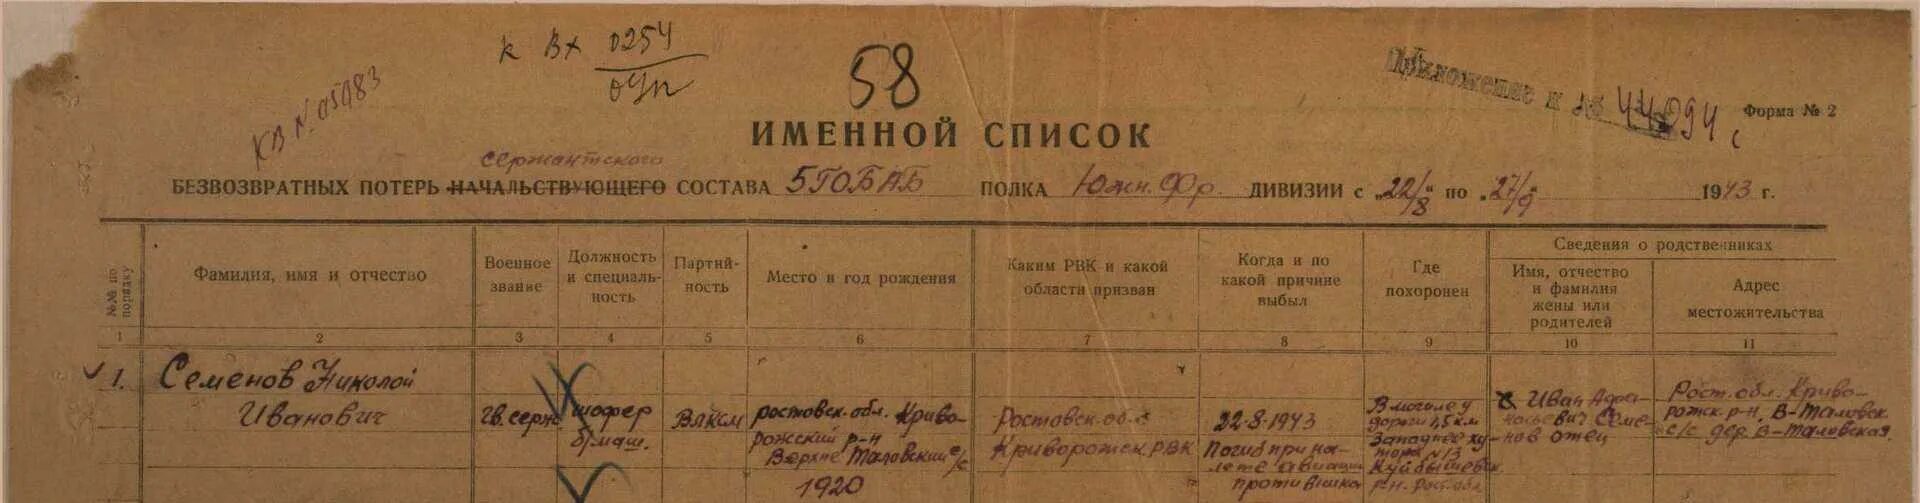 к Вх 0254
58
Приложение к № 44094 с
Форма № 2
КВ N. 05983
ИМЕННОЙ СПИСОК
сержантского
БЕЗВОЗВРАТНЫХ ПОТЕРЬ НАЧАЛЬСТВУЮЩЕГО СОСТАВА 5 ГОБАБ ПОЛКА Южн. Фр. ДИВИЗИИ С „22/8" ПО „27/9" 1943 г.
№№ по порядку
Фамилия, имя и отчество
Военное звание
Должность и специальность
Партийность
Место и год рождения
Каким РВК и какой области призван
Когда и по какой причине выбыл
Где похоронен
Сведения о родственниках
Имя, отчество и фамилия жены или родителей
Адрес местожительства
1 2 3 4 5 6 7 8 9 10 11
1. Семенов Николой
Иванович
гв. серж.
шофер
б/маш.
ВЛКСМ
ростовск. обл. Криво-
рожский р-н
Верхне Таловский с/с
1920
Ростовск. обл.
Криворожск. РВК
22-8-1943
Погиб при на-
лете авиации
противника
В могиле у
дороги 1,5 км
Западнее ху-
тора №13
Куйбышевск.
р-н. Рост. обл.
Иван Афа-
насьевич Семе-
нов отец
Рост. обл. Криво-
рожск. р-н, В-Таловск.
с/с дер. В-Таловская.